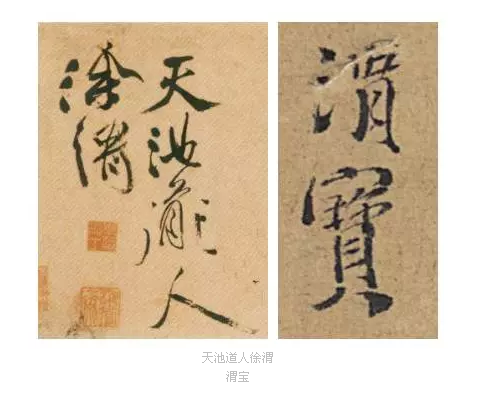 天池道人
徐渭
渭寶
天池道人徐渭
渭宝